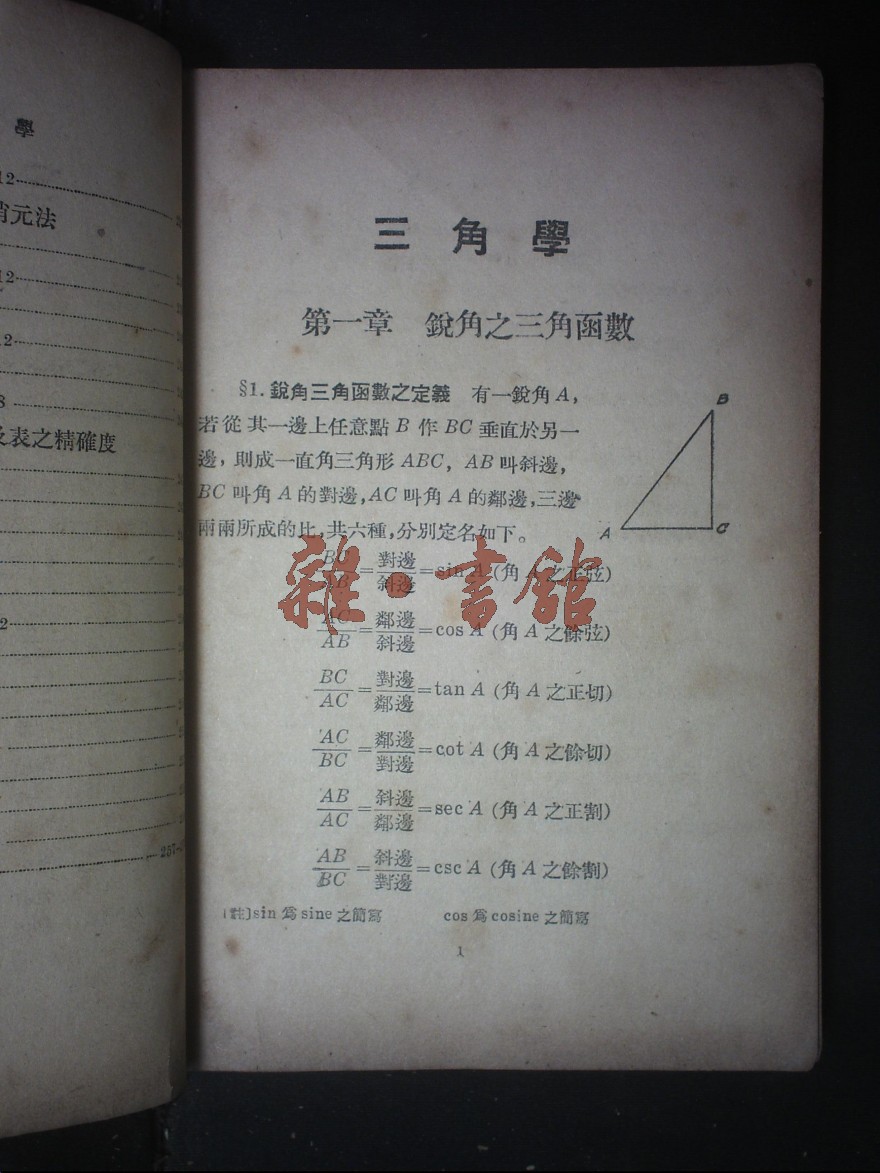 學
12
消元法
12
12
8
及表之精確度
2
257
三角學
第一章 銳角之三角函數
§1. 銳角三角函數之定義 有一銳角 A,
若從其一邊上任意點 B 作 BC 垂直於另一
邊, 則成一直角三角形 ABC, AB 叫斜邊,
BC 叫角 A 的對邊, AC 叫角 A 的鄰邊, 三邊
兩兩所成的比, 共六種, 分別定名如下。
B
A
C
BC/AB = 對邊/斜邊 = sin A (角 A 之正弦)
AC/AB = 鄰邊/斜邊 = cos A (角 A 之餘弦)
BC/AC = 對邊/鄰邊 = tan A (角 A 之正切)
AC/BC = 鄰邊/對邊 = cot A (角 A 之餘切)
AB/AC = 斜邊/鄰邊 = sec A (角 A 之正割)
AB/BC = 斜邊/對邊 = csc A (角 A 之餘割)
[註] sin 爲 sine 之簡寫 cos 爲 cosine 之簡寫
1
雜·書舘